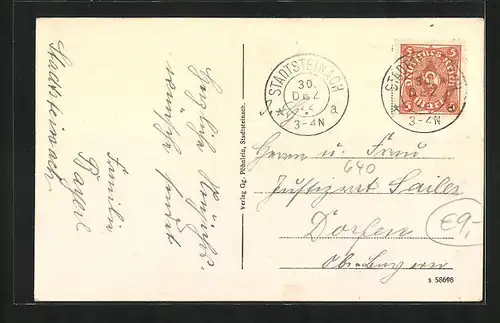 Stadtsteinach
Herzliche Neujahrs-
wünsche sendet
Familie
Verlag Gg. Pöhnlein, Stadtsteinach.
STADTSTEINACH
30.
DEZ
22
3-4N
a
STADTSTEINACH
30.
DEZ
3-4N
a
5 DEUTSCHES REICH 5
Herrn u. Frau
640
Justizrat Sailer
Dorfen
Oberbayern
€9,-
s 58698